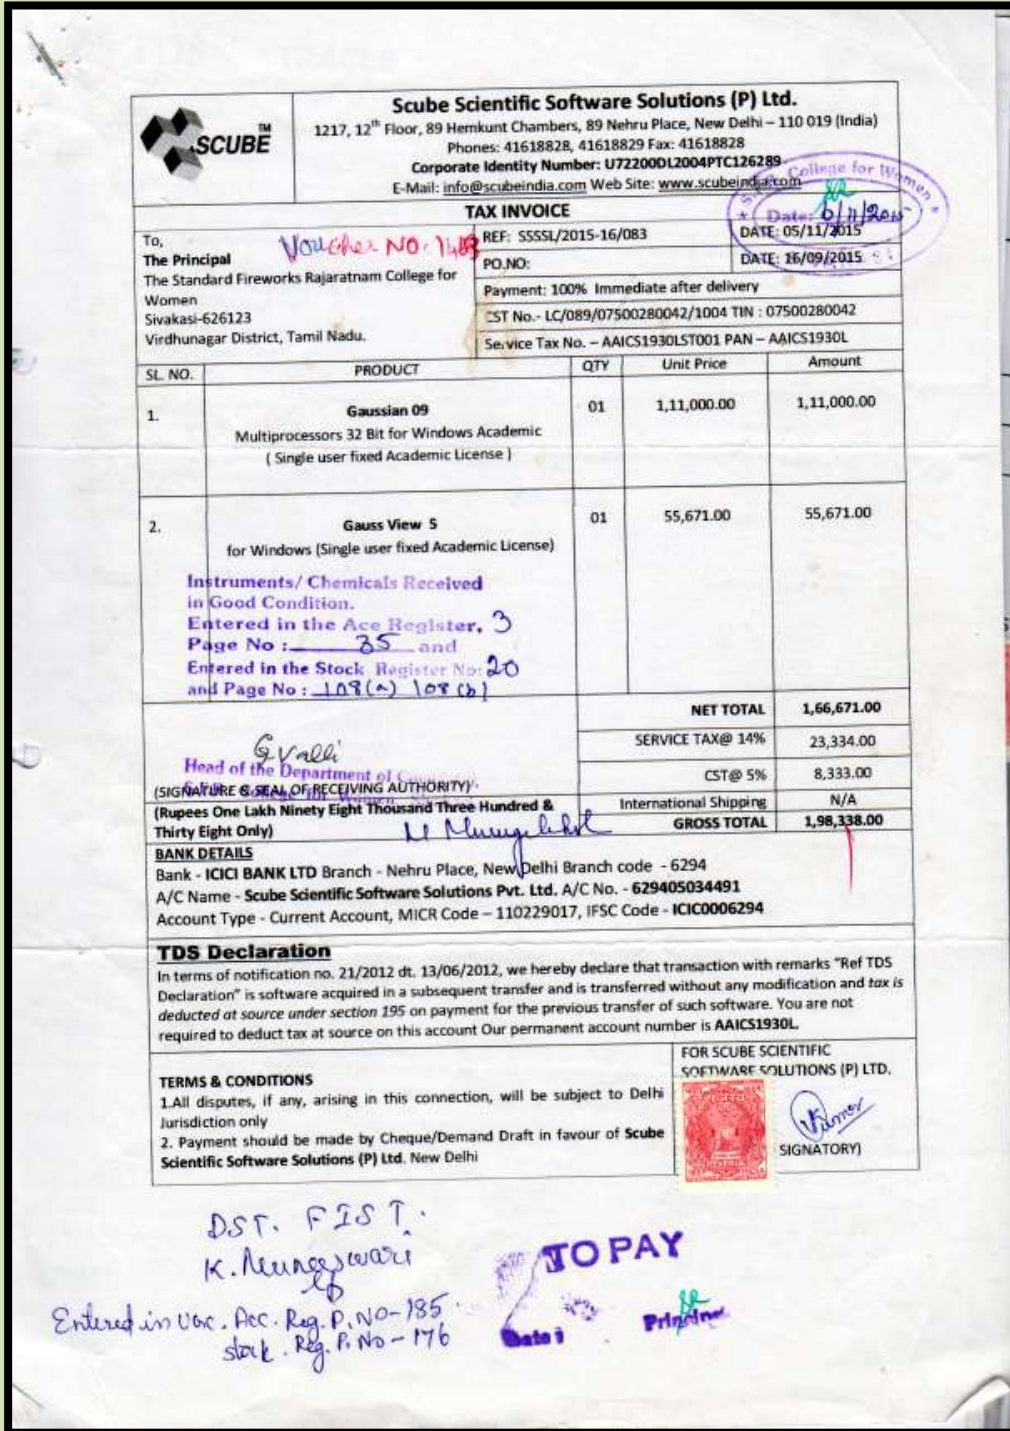 SCUBE TM
Scube Scientific Software Solutions (P) Ltd.
1217, 12th Floor, 89 Hemkunt Chambers, 89 Nehru Place, New Delhi – 110 019 (India)
Phones: 41618828, 41618829 Fax: 41618828
Corporate Identity Number: U72200DL2004PTC126289
E-Mail: info@scubeindia.com Web Site: www.scubeindia.com
College for Women
Date:
TAX INVOICE
To,
Voucher NO.
The Principal
The Standard Fireworks Rajaratnam College for
Women
Sivakasi-626123
Virdhunagar District, Tamil Nadu.
REF: SSSSL/2015-16/083 DATE: 05/11/2015
PO.NO: DATE: 16/09/2015
Payment: 100% Immediate after delivery
CST No.- LC/089/07500280042/1004 TIN : 07500280042
Service Tax No. – AAICS1930LST001 PAN – AAICS1930L
SL. NO. PRODUCT QTY Unit Price Amount
1. Gaussian 09 01 1,11,000.00 1,11,000.00
Multiprocessors 32 Bit for Windows Academic
( Single user fixed Academic License )
2. Gauss View 5 01 55,671.00 55,671.00
for Windows (Single user fixed Academic License)
Instruments/ Chemicals Received
in Good Condition.
Entered in the Ace Register. 3
Page No : 35 and
Entered in the Stock Register No: 20
and Page No : 108(a) 108(b)
NET TOTAL 1,66,671.00
SERVICE TAX@ 14% 23,334.00
CST@ 5% 8,333.00
International Shipping N/A
GROSS TOTAL 1,98,338.00
GValli
Head of the Department of
(SIGNATURE & SEAL OF RECEIVING AUTHORITY)
(Rupees One Lakh Ninety Eight Thousand Three Hundred &
Thirty Eight Only)
BANK DETAILS
Bank - ICICI BANK LTD Branch - Nehru Place, New Delhi Branch code - 6294
A/C Name - Scube Scientific Software Solutions Pvt. Ltd. A/C No. - 629405034491
Account Type - Current Account, MICR Code – 110229017, IFSC Code - ICIC0006294
TDS Declaration
In terms of notification no. 21/2012 dt. 13/06/2012, we hereby declare that transaction with remarks "Ref TDS
Declaration" is software acquired in a subsequent transfer and is transferred without any modification and tax is
deducted at source under section 195 on payment for the previous transfer of such software. You are not
required to deduct tax at source on this account Our permanent account number is AAICS1930L.
TERMS & CONDITIONS
1.All disputes, if any, arising in this connection, will be subject to Delhi
Jurisdiction only
2. Payment should be made by Cheque/Demand Draft in favour of Scube
Scientific Software Solutions (P) Ltd. New Delhi
FOR SCUBE SCIENTIFIC
SOFTWARE SOLUTIONS (P) LTD.
SIGNATORY)
DST. FIST.
K. Muneeswari
Entered in Acc. Reg. P. NO-185
stock. Reg. P. No - 176
TO PAY
Date :
Principal